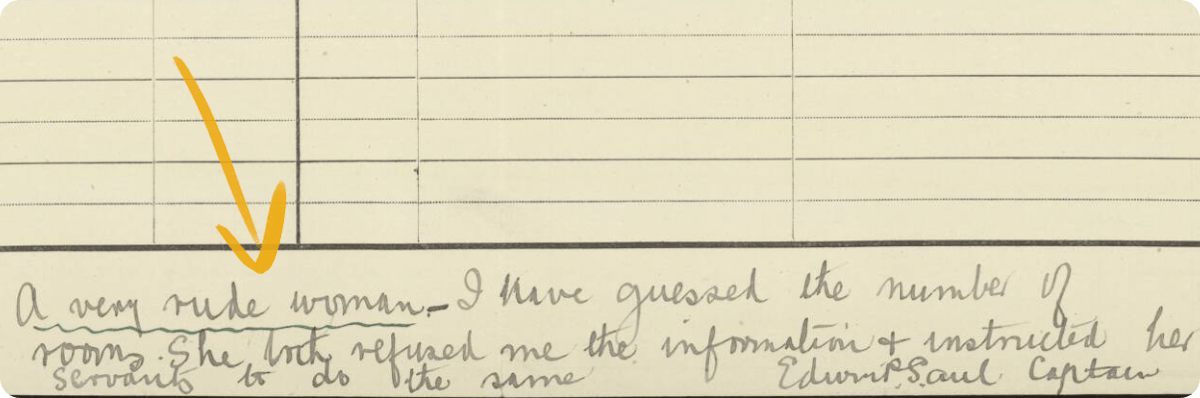 A very rude woman.- I have guessed the number of
rooms. She both refused me the information & instructed her
servants to do the same Edwin P. Saul Captain